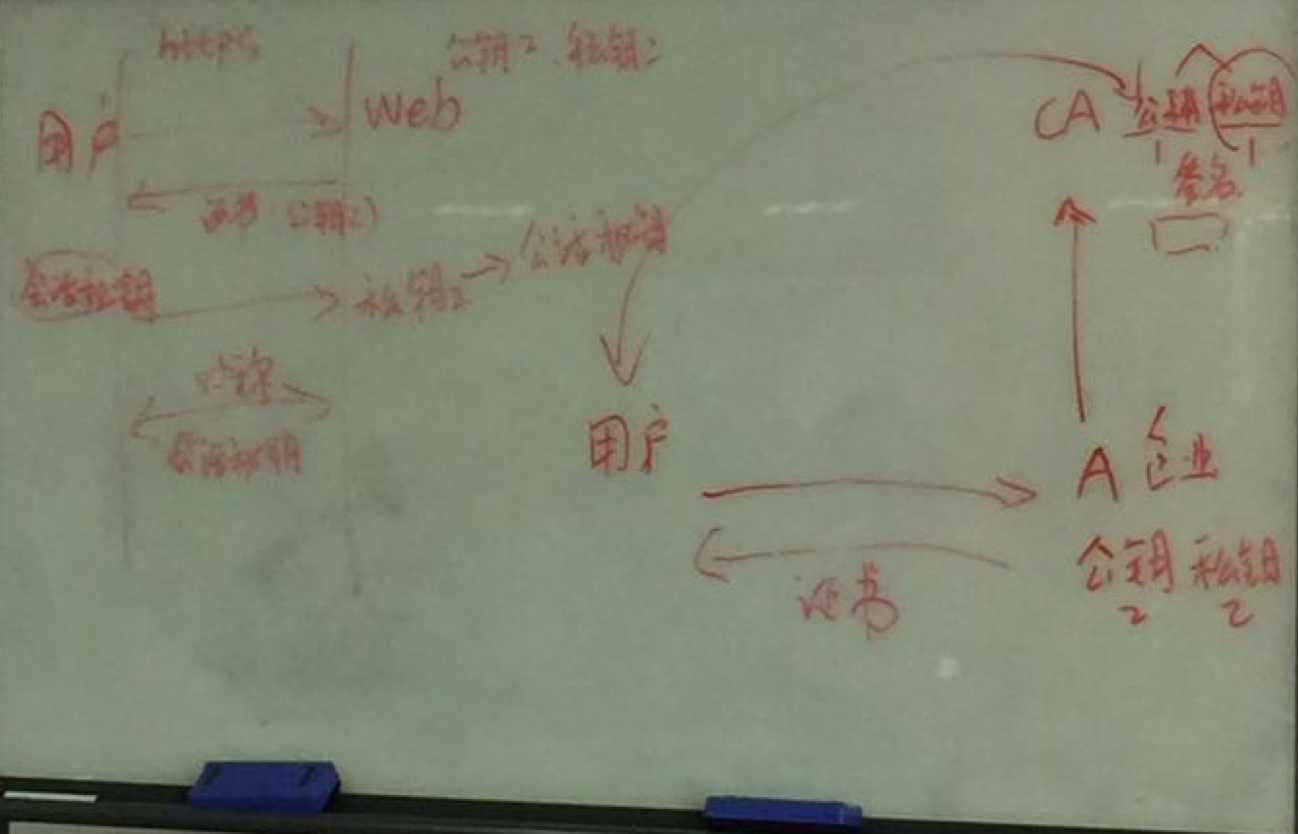 https
公钥2 私钥2
用户
web
证书(公钥2)
会话私钥
私钥2
会话私钥
对称
会话私钥
CA
公钥
私钥
1
1
签名
用户
A 企业
证书
公钥 私钥
2
2